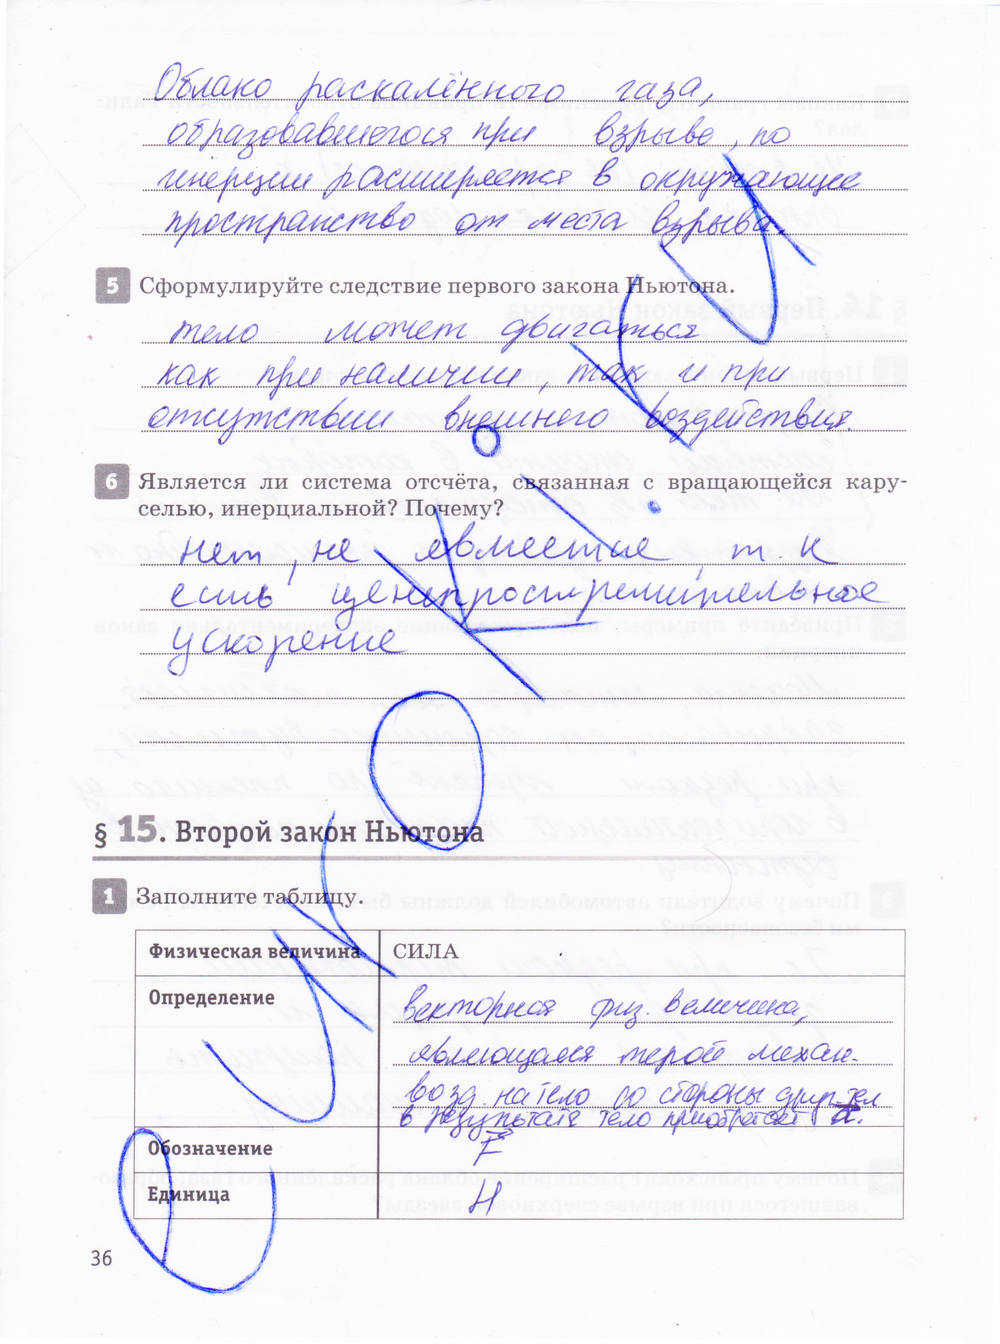 Облако раскалённого газа,
образовавшегося при взрыве, по
инерции расширяется в окружающее
пространство от места взрыва.
5 Сформулируйте следствие первого закона Ньютона.
тело может двигаться
как при наличии, так и при
отсутствии внешнего воздействия
6 Является ли система отсчёта, связанная с вращающейся кару-
селью, инерциальной? Почему?
нет, не является, т.к
есть центростремительное
ускорение
§ 15. Второй закон Ньютона
1 Заполните таблицу.
Физическая величина СИЛА
Определение векторная физ. величина,
являющаяся мерой механ.
возд. на тело со стороны друг. тел
в результате тело приобретает a.
Обозначение F
Единица Н
36